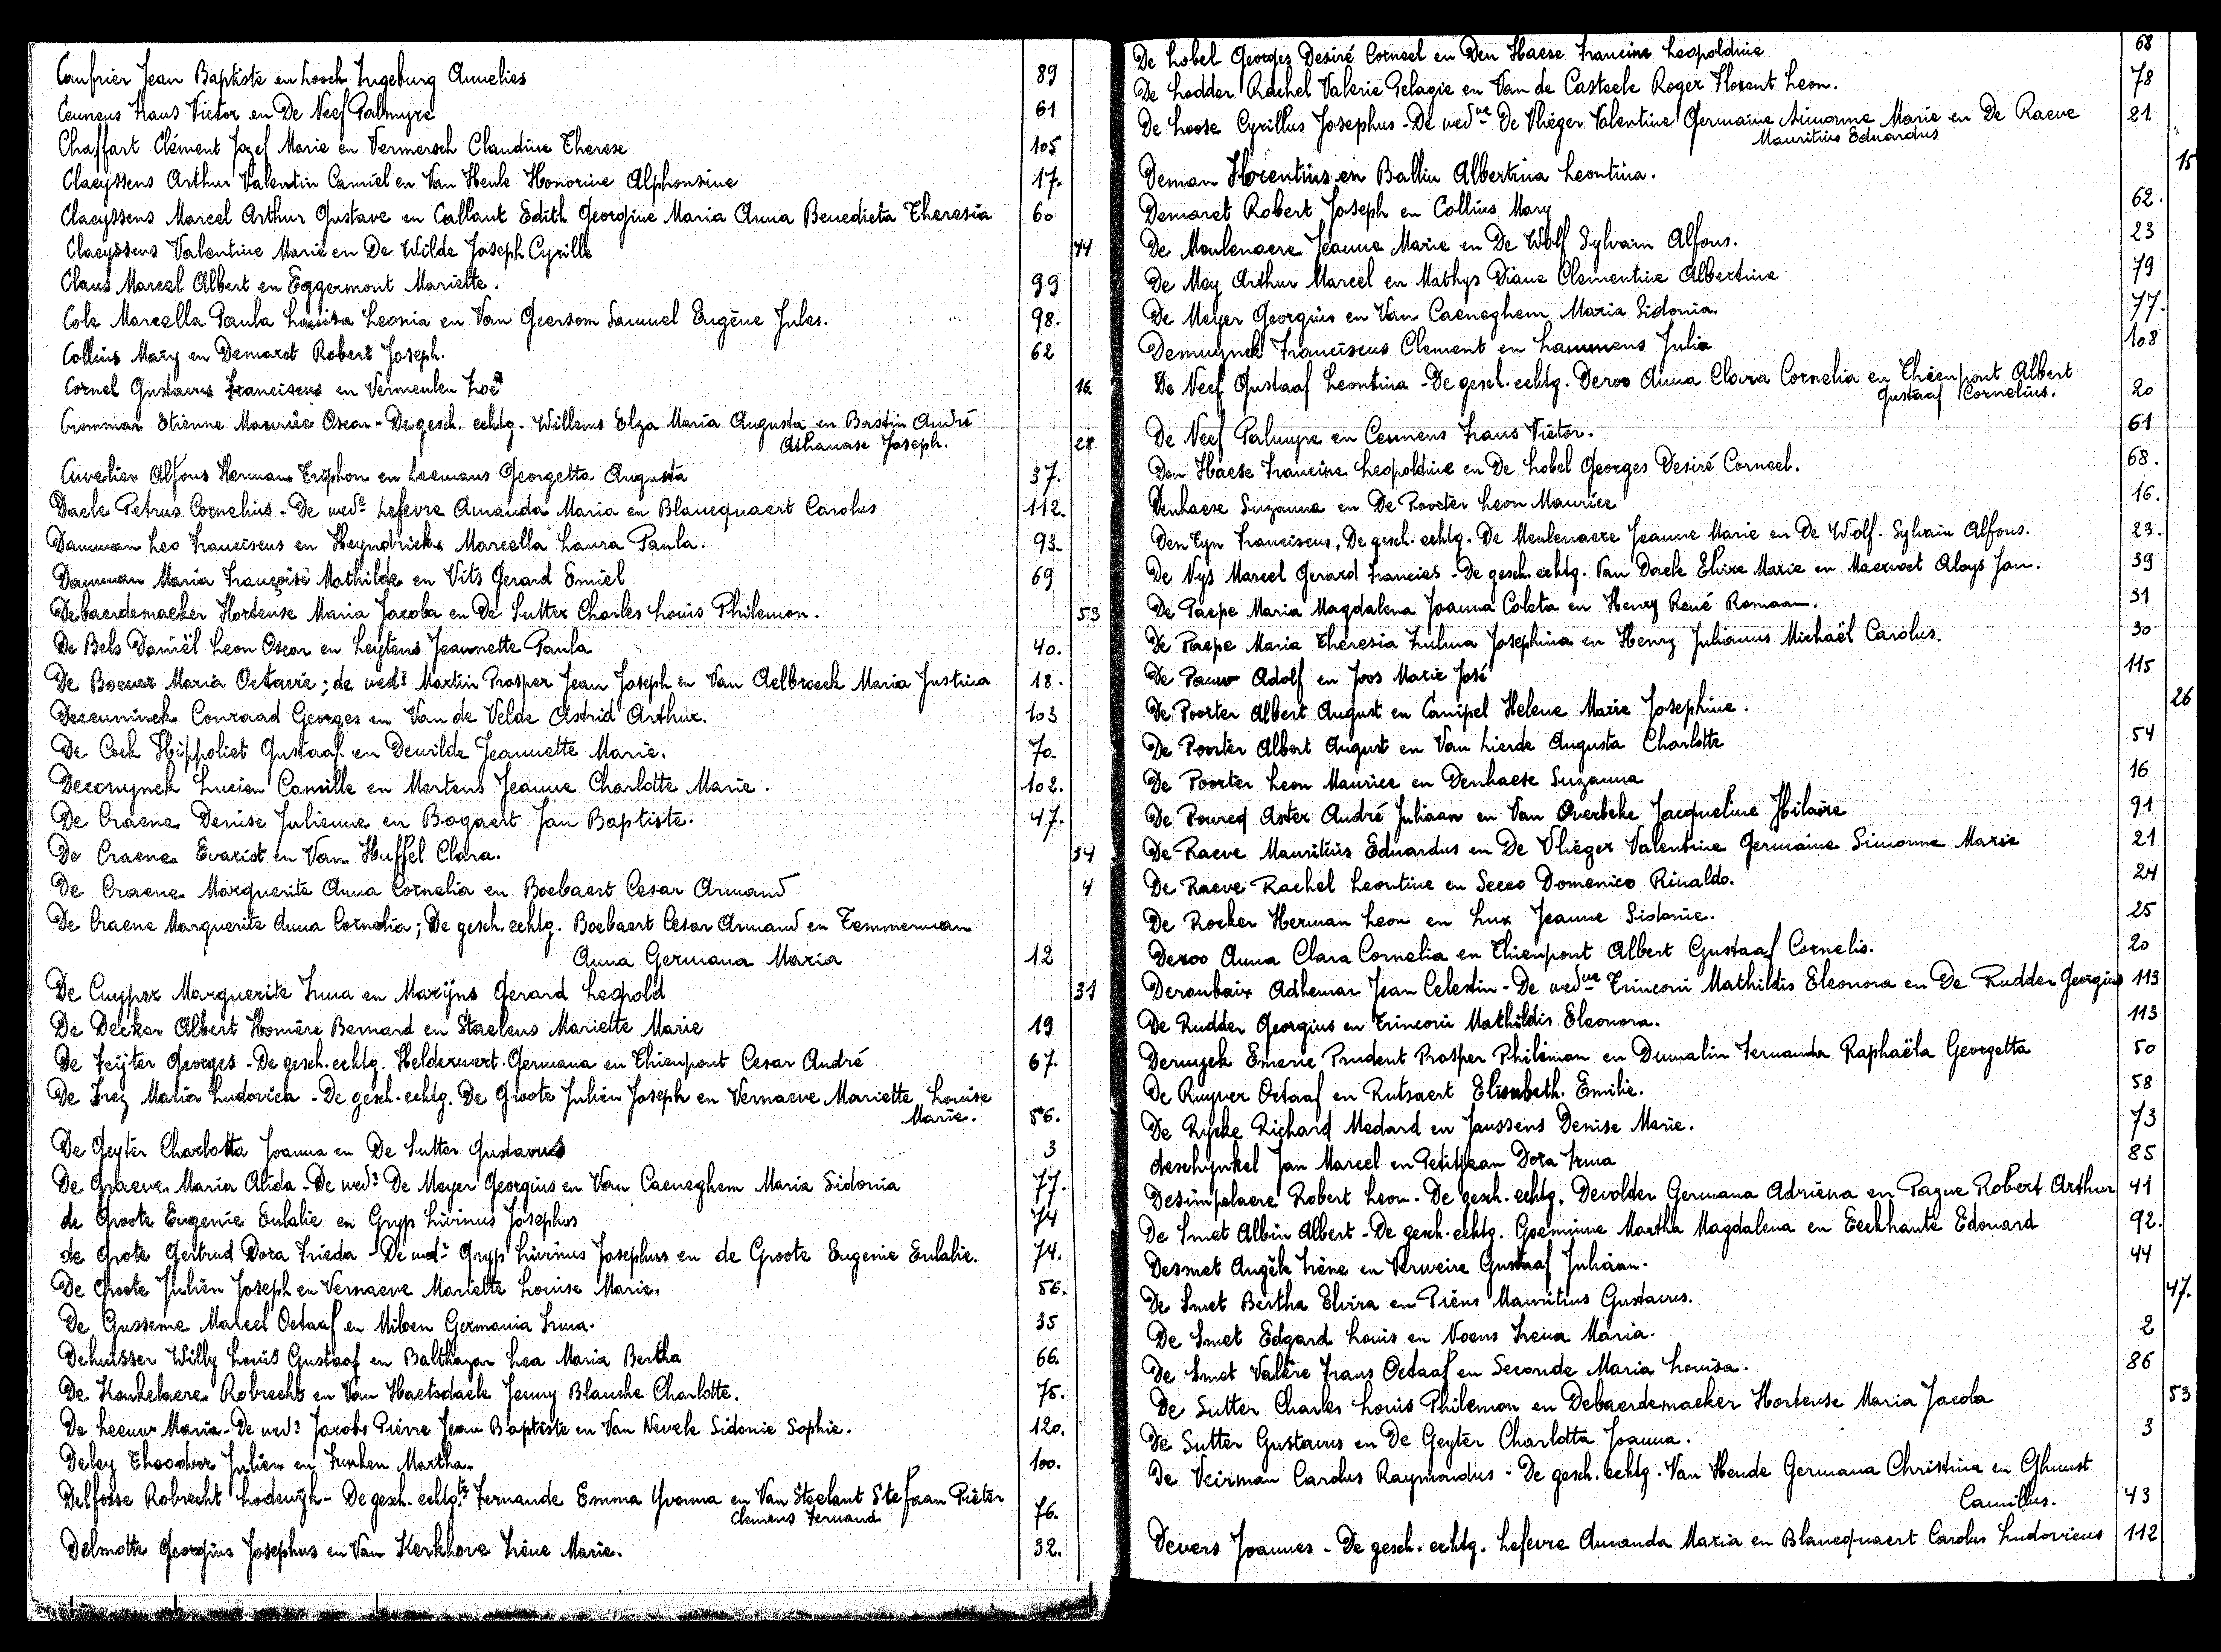 Caufrier Jean Baptiste en Loock Ingeburg Annelies 89
Ceunens Frans Victor en De Neef Palmyre 61
Chaffart Clément Jozef Marie en Vermersch Claudine Therese 105
Claeyssens Arthur Valentin Camiel en Van Heule Honorine Alphonsine 17.
Claeyssens Marcel Arthur Gustave en Callant Edith Georgine Maria Anna Benedicta Theresia 60
Claeyssens Valentine Marie en De Wilde Joseph Cyrille 44
Claus Marcel Albert en Eggermont Mariette. 99
Cole Marcella Paula Louisa Leonia en Van Geersom Samuel Eugène Jules. 98.
Collins Mary en Demaret Robert Joseph. 62
Cornel Gustavus Franciscus en Vermeulen Zoë 16.
Crommar Etienne Maurice Oscar - De gesch. echtg. Willems Elza Maria Augusta en Bastin André
Athanase Joseph. 28
Cuvelier Alfons Herman Triphon en Leemans Georgetta Augusta 37.
Daele Petrus Cornelius - De wed. Lefevre Amanda Maria en Blancquaert Carolus 112.
Damman Leo Franciscus en Heyndrickx Marcella Laura Paula. 93.
Damman Maria Françoise Mathilde en Vits Gerard Emiel 69
Debaerdemaeker Hortense Maria Jacoba en De Sutter Charles Louis Philemon. 53
De Bels Daniël Leon Oscar en Leytens Jeannette Paula 40.
De Boever Maria Octavie; de wed. Martin Prosper Jean Joseph en Van Aelbroeck Maria Justina 18.
Deceuninck Conraad Georges en Van de Velde Astrid Arthur. 103
De Cock Hippoliet Gustaaf en Dewilde Jeannette Marie. 70.
Decosynck Lucien Camille en Mertens Jeanne Charlotte Marie. 102.
De Craene Denise Julienne en Bogaert Jan Baptiste. 47.
De Craene Evarist en Van Huffel Clara. 34
De Craene Marguerite Anna Cornelia en Boebaert Cesar Armand 4
De Craene Marguerite Anna Cornelia; De gesch. echtg. Boebaert Cesar Armand en Temmerman
Anna Germana Maria 12
De Cuyper Marguerite Irma en Marijns Gerard Leopold 31
De Decker Albert Homère Bernard en Staelens Mariette Marie 19
De Feijter Georges - De gesch. echtg. Helderwert Germana en Thienpont Cesar André 67.
De Frez Maria Ludovica - De gesch. echtg. De Groote Julien Joseph en Vernaeve Mariette Louise
Marie. 56.
De Geyter Charlotta Joanna en De Sutter Gustavus 3
De Graeve Maria Alida - De wed. De Meyer Georgius en Van Caeneghem Maria Sidonia 77.
de Groote Eugenie Eulalie en Gryp Livinus Josephus 74
de Groote Gertrud Dora Frieda - De wed. Gryp Livinus Josephus en de Groote Eugenie Eulalie. 74.
De Groote Julien Joseph en Vernaeve Mariette Louise Marie. 56.
De Gusseme Marcel Octaaf en Miloen Germania Irma. 35
Dehuisser Willy Louis Gustaaf en Balthazar Lea Maria Bertha 66.
De Keukelaere Robrecht en Van Haetsdaele Jenny Blanche Charlotte. 75.
De Leeuw Maria - De wed. Jacobs Pierre Jean Baptiste en Van Nevele Sidonie Sophie. 120.
Deley Theodoor Julien en Funken Martha. 100.
Delfosse Robrecht Lodewijk - De gesch. echtg. Fernande Emma Yvonna en Van Steelant Stefaan Pieter
Clemens Fernand 76.
Delmotte Georgius Josephus en Van Kerkhove Irène Marie. 32.
De Lobel Georges Desiré Corneel en Den Haese Francine Leopoldine 68
De Lodder Rachel Valerie Pelagie en Van de Casteele Roger Florent Leon. 78
De Loose Cyrillus Josephus - De wed.we De Vlieger Valentine Germaine Simonne Marie en De Raeve 21
Mauritius Eduardus
Deman Florentius en Balliu Albertina Leontina. 15
Demaret Robert Joseph en Collins Mary 62.
De Meulenaere Jeanne Marie en De Wolf Sylvain Alfons. 23
De Mey Arthur Marcel en Mathys Diane Clementine Albertine 79
De Meyer Georgius en Van Caeneghem Maria Sidonia. 77.
Demuynck Franciscus Clement en Lammens Julia 108
De Neef Gustaaf Leontina - De gesch. echtg. Deroo Anna Clara Cornelia en Thienpont Albert
Gustaaf Cornelius. 20
De Neef Palmyre en Ceunens Frans Victor. 61
Den Haese Francine Leopoldine en De Lobel Georges Desiré Corneel. 68.
Denhaese Suzanna en De Poorter Leon Maurice 16.
Den Tyn Franciscus, De gesch. echtg. De Meulenaere Jeanne Marie en De Wolf Sylvain Alfons. 23.
De Nys Marcel Gerard Francies - De gesch. echtg. Van Daele Elvire Marie en Maervoet Aloys Jan. 39
De Paepe Maria Magdalena Joanna Coleta en Henry René Romaan. 31
De Paepe Maria Theresia Zulma Josephina en Henry Julianus Michaël Carolus. 30
De Pauw Adolf en Joos Marie José 115
De Poorter Albert August en Canipel Helene Marie Josephine. 26
De Poorter Albert August en Van Lierde Augusta Charlotte 54
De Poorter Leon Maurice en Denhaese Suzanna 16
De Poureq Aster André Juliaan en Van Overbeke Jacqueline Hilaire 91
De Raeve Mauritius Eduardus en De Vlieger Valentine Germaine Simonne Marie 21
De Raeve Rachel Leontine en Secco Domenico Rinaldo. 24
De Rocker Herman Leon en Lux Jeanne Sidonie. 25
Deroo Anna Clara Cornelia en Thienpont Albert Gustaaf Cornelis. 20
Deroubaix Adhemar Jean Celestin - De wed.we Trinconi Mathildis Eleonora en De Rudder Georgius 113
De Rudder Georgius en Trinconi Mathildis Eleonora. 113
Deruyck Emerie Prudent Prosper Philémon en Dumalin Fernanda Raphaëla Georgetta 50
De Ruyver Octaaf en Rutsaert Elisabeth Emilie. 58
De Rycke Richard Medard en Janssens Denise Marie. 73
deschynkel Jan Marcel en Petitjean Dora Irma 85
Desimpelaere Robert Leon - De gesch. echtg. Devolder Germana Adriena en Pazue Robert Arthur 41
De Smet Albin Albert - De gesch. echtg. Goeminne Martha Magdalena en Eeckhaute Edouard 92.
Desmet Angèle Irène en Verweire Gustaaf Juliaan. 44
De Smet Bertha Elvira en Piens Mauritius Gustavus. 47.
De Smet Edgard Louis en Noens Irena Maria. 2
De Smet Valère Frans Octaaf en Seconde Maria Louisa. 86
De Sutter Charles Louis Philemon en Debaerdemaeker Hortense Maria Jacoba 53
De Sutter Gustavus en De Geyter Charlotta Joanna. 3
De Veirman Carolus Raymondus - De gesch. echtg. Van Hende Germana Christina en Ghuust
Camillus. 43
Devers Joannes - De gesch. echtg. Lefevre Amanda Maria en Blancquaert Carolus Ludovicus 112